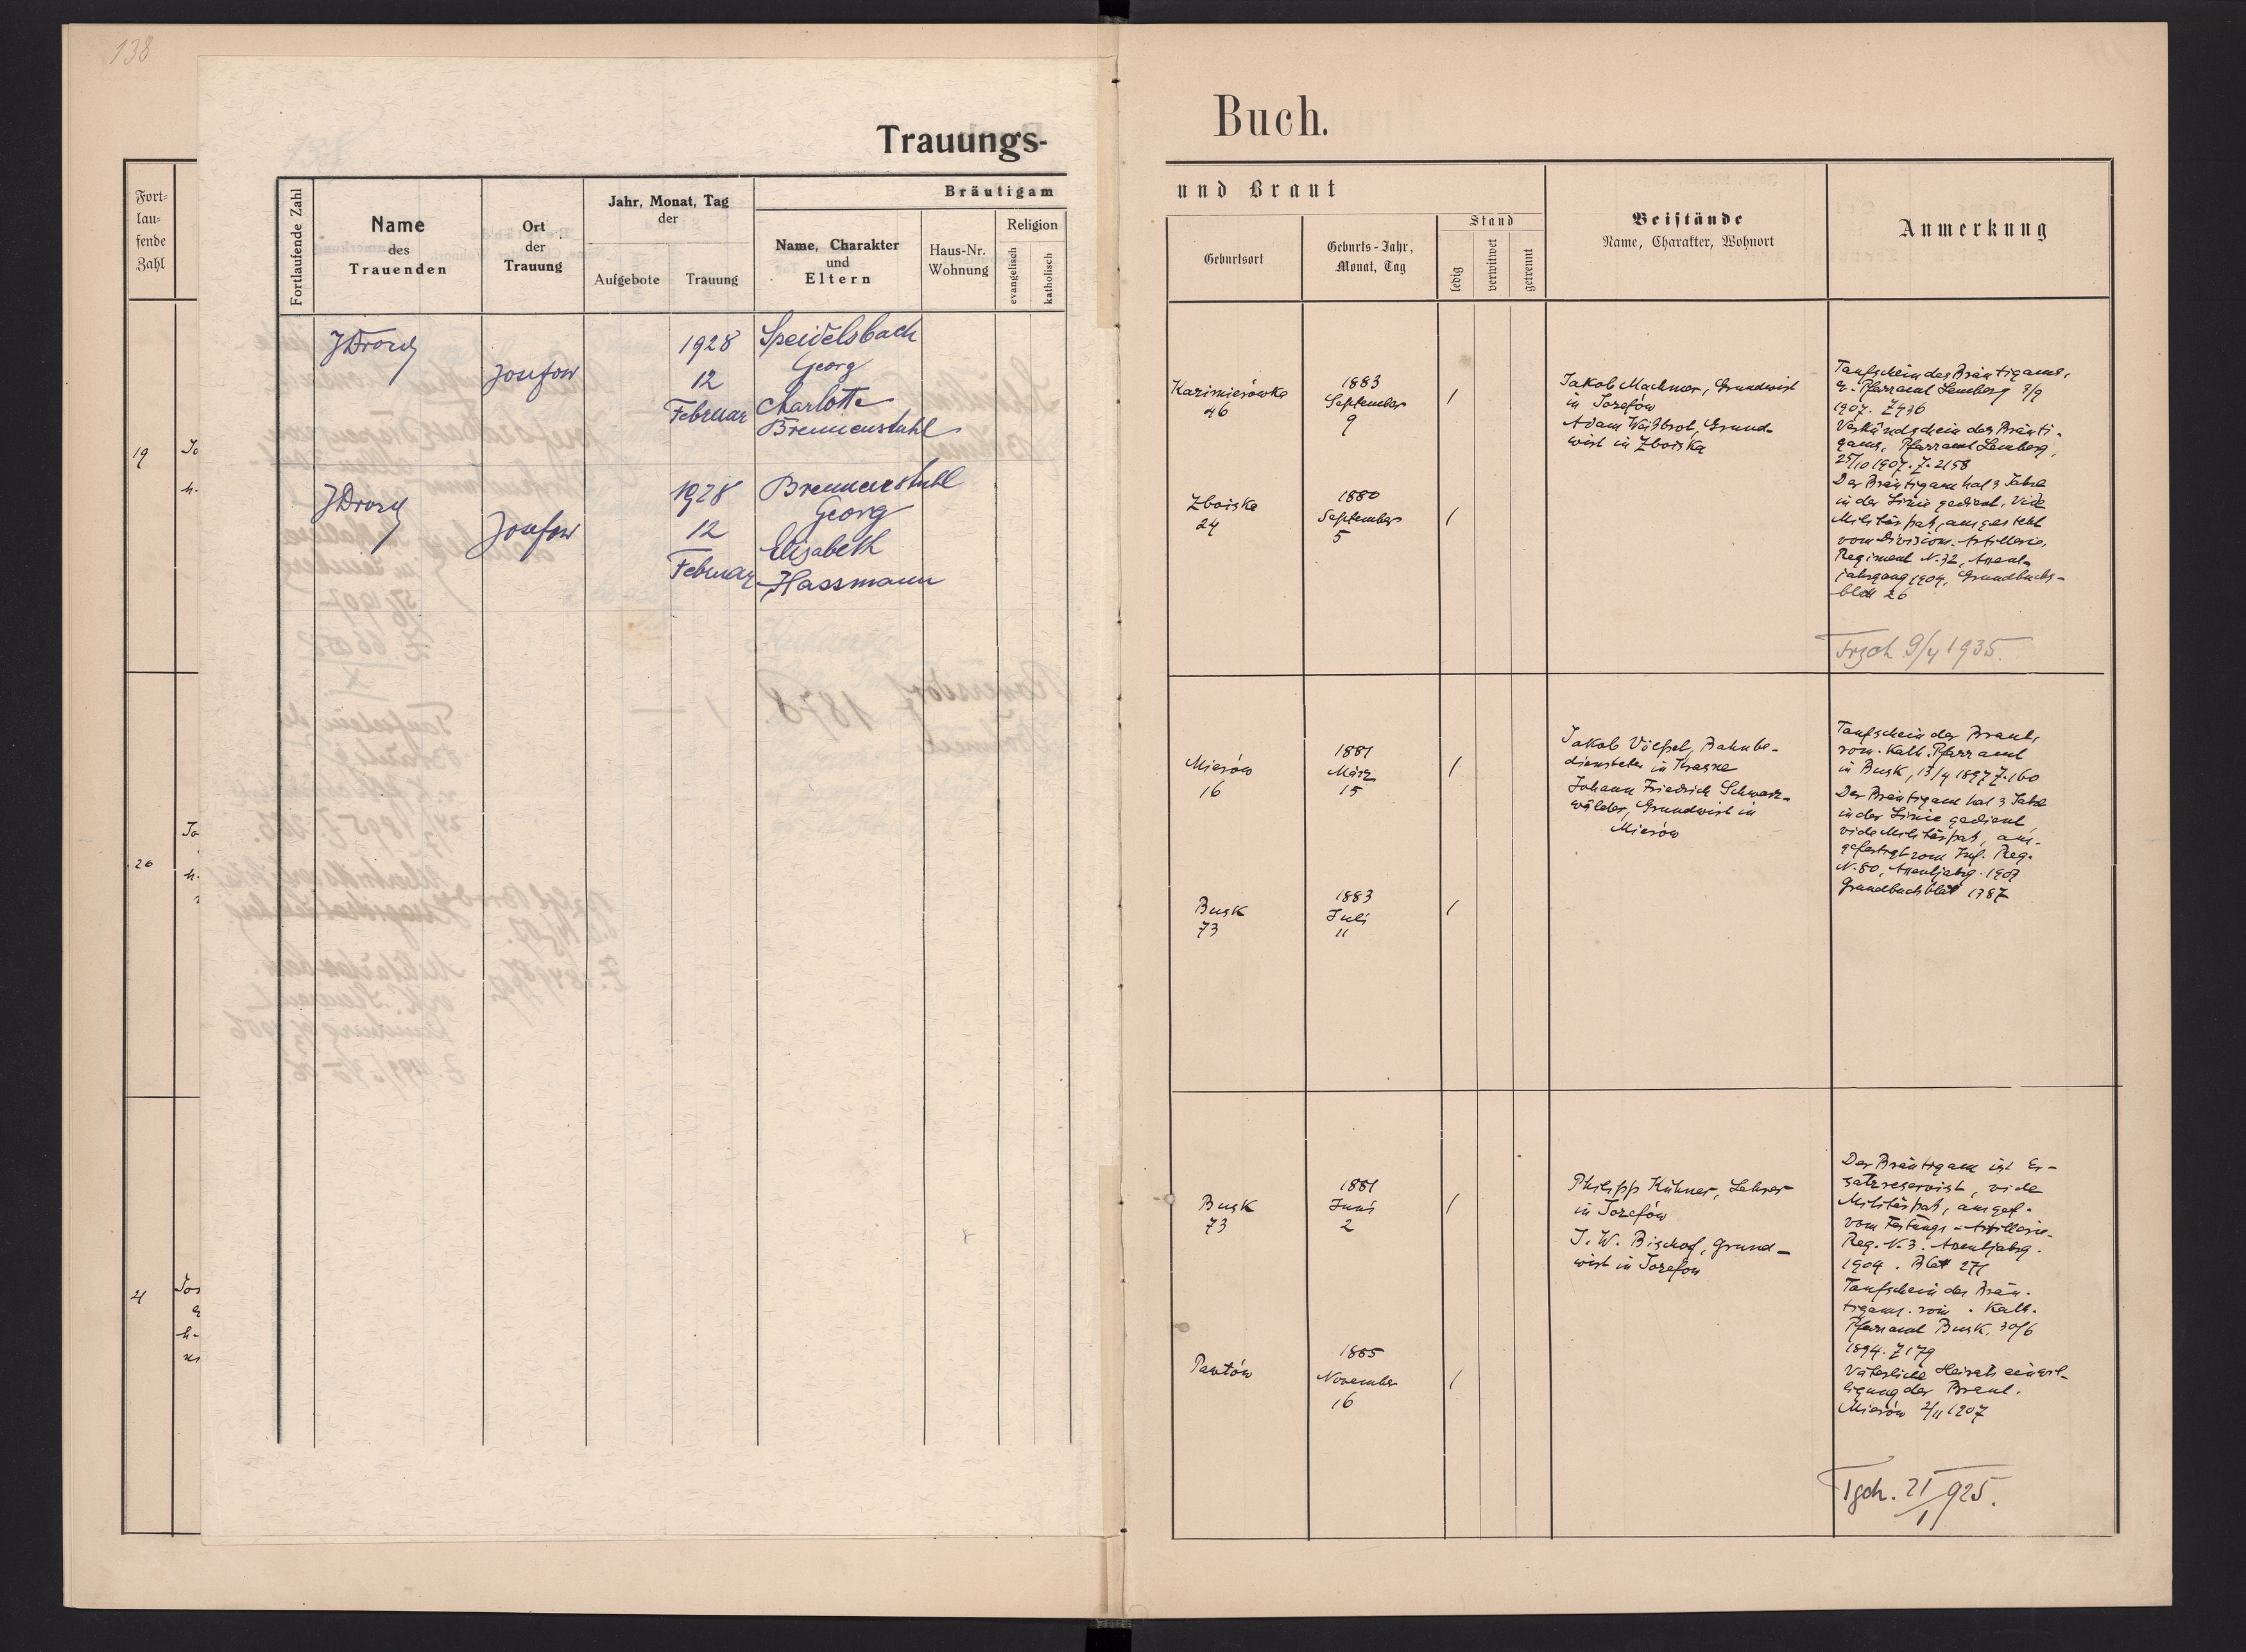 138
Fort-
lau-
fende
Zahl
19
Jo
h.
20
Jo
h.
21
Jos
h-
Trauungs-
Fortlaufende Zahl
Name
des
Trauenden
Ort
der
Trauung
Jahr, Monat, Tag
der
Aufgebote
Trauung
Bräutigam
Name, Charakter
und
Eltern
Haus-Nr.
Wohnung
Religion
evangelisch
katholisch
JDrozd
Josefow
1928
12
Februar
Speidelsbach
Georg
Charlotte
Brennenstuhl
JDrozd
Josefow
1928
12
Februar
Brennenstuhl
Georg
Elisabeth
Hassmann
Buch.
und Braut
Geburtsort
Geburts-Jahr,
Monat, Tag
Stand
ledig
verwitwet
getrennt
Beistände
Name, Charakter, Wohnort
Anmerkung
Kazimierówka
46
1883
September
9
/
Jakob Machmer, Grundwirt
in Josefów
Adam Weißbrot, Grund-
wirt in Zboiska
Taufschein des Bräutigams,
e. Pfarramt Lemberg 3/9
1907. Z 436
Verkündschein des Bräuti-
gams, Pfarramt Lemberg,
25/10 1907. Z. 2158
Der Bräutigam hat 3 Jahre
in der Linie gedient, vide
Militärpaß, ausgestellt
vom Division-Artillerie-
Regiment N. 32, Assent-
jahrgang 1904, Grundbuchs-
blatt 26
Zboiska
24
1880
September
5
/
Trsch 9/4 1935.
Mierów
16
1881
März
15
/
Jakob Völpel, Bahnbe-
diensteter in Krasne
Johann Friedrich Schwarz-
wälder, Grundwirt in
Mierów
Taufschein der Braut,
röm. Kath. Pfarramt
in Busk, 13/4 1897 Z. 160
Der Bräutigam hat 3 Jahre
in der Linie gedient
vide Militärpaß, aus-
gefertigt vom Inf. Reg.
N. 80, Assentjahrg. 1907
Grundbuchblatt 1387
Busk
73
1883
Juli
11
/
Busk
73
1881
Juni
2
/
Philipp Kühner, Lehrer
in Josefów
J. W. Bischof, Grund-
wirt in Josefow
Der Bräutigam ist Er-
satzreservist, vide
Militärpaß, ausgef.
vom Festungs-Artillerie-
Reg. N. 3. Assentjahrg.
1904. Blatt 271
Taufschein des Bräu-
tigams. röm. Kath.
Pfarramt Busk, 30/6
1894. Z 179
Väterliche Heiratseinwil-
ligung der Braut.
Mierów 2/11 1907
1885
November
16
/
Tsch. 21/1 925.